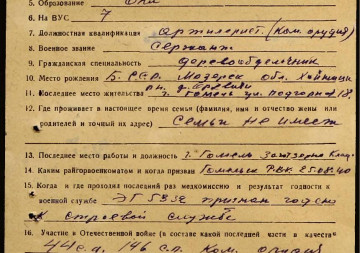 5. Образование
6. На ВУС 7
7. Должностная квалификация артилерист. (Ком. орудия)
8. Военное звание Сержант
9. Гражданская специальность деревообделочник
10. Место рождения Б.ССР. Мозерск обл. Хойницк
рн. д.
11. Последнее место жительства г. Гомель ул. Подгорная 18.
12. Где проживает в настоящее время семья (фамилия, имя и отчество жены или
родителей и точный их адрес) Семьи не имеет
13. Последнее место работы и должность г. Гомель
14. Каким райгорвоенкоматом и когда призван Гомельск РВК 25.08.40
15. Когда и где проходил последний раз медкомиссию и результат годности к
военной службе ЭГ 5332 признан годен
к строевой службе
16. Участие в Отечественной войне (в составе какой последней части в качестве
44 с.д. 146 с.п. Ком. орудия